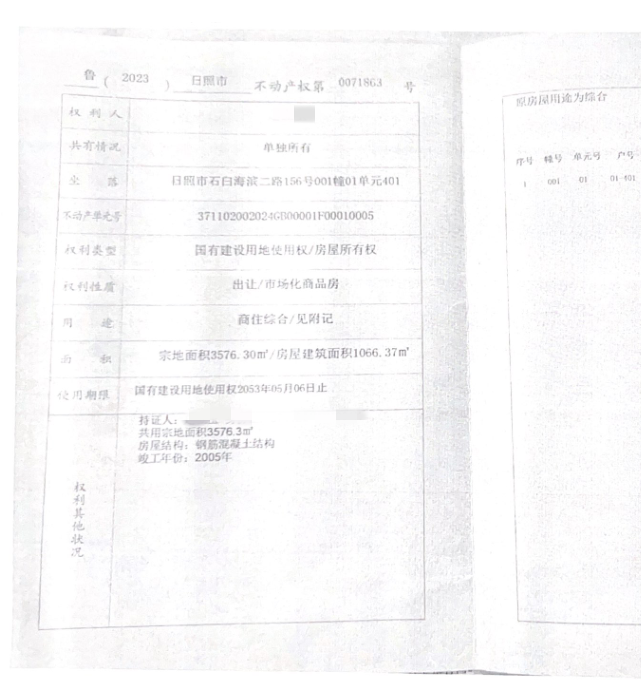 鲁 ( 2023 ) 日照市 不动产权第 0071863 号
权利人
共有情况 单独所有
坐落 日照市石臼海滨二路156号001幢01单元401
不动产单元号 371102002024GB00001F00010005
权利类型 国有建设用地使用权/房屋所有权
权利性质 出让/市场化商品房
用途 商住综合/见附记
面积 宗地面积3576.30㎡/房屋建筑面积1066.37㎡
使用期限 国有建设用地使用权2053年05月06日止
权利其他状况
持证人:
共用宗地面积3576.3㎡
房屋结构:钢筋混凝土结构
竣工年份:2005年
原房屋用途为综合
序号 幢号 单元号 户号
1 001 01 01-401